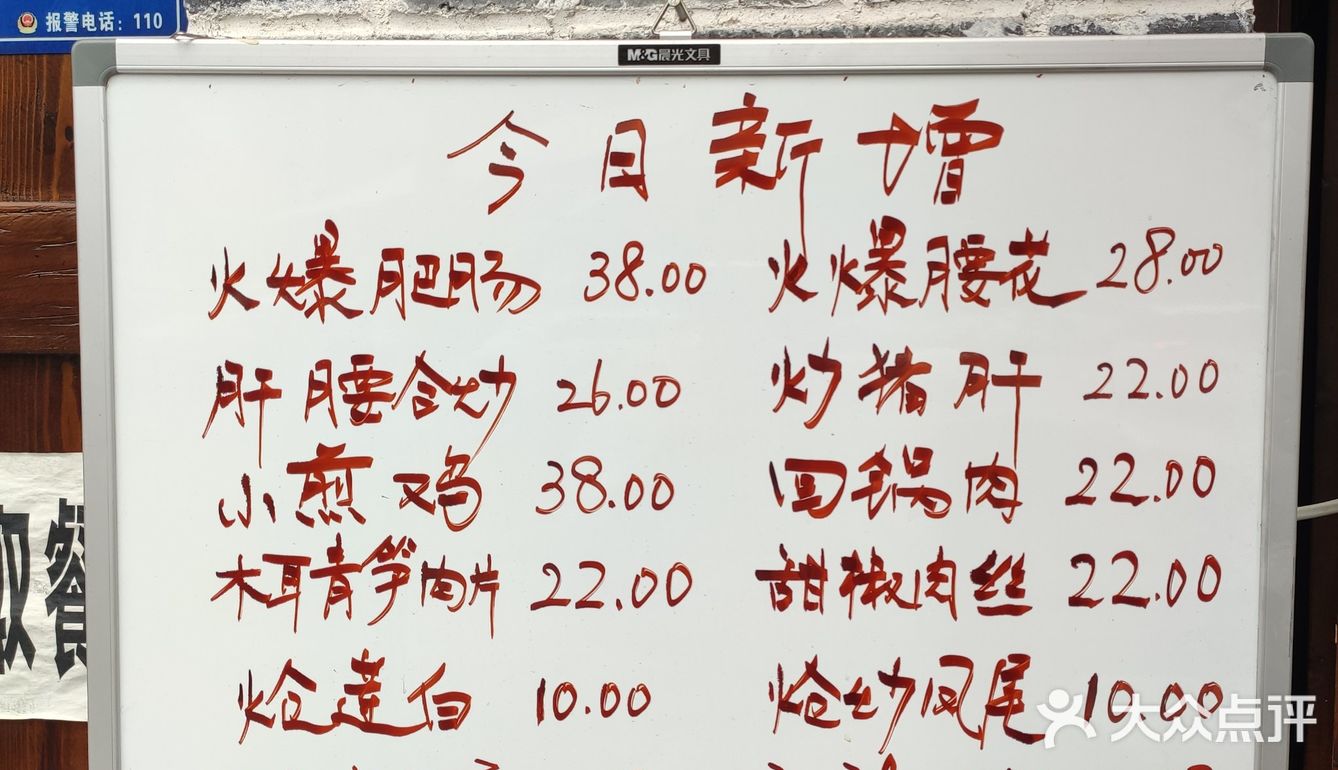 报警电话：110
M&G晨光文具
今日新增
火爆肥肠 38.00 火爆腰花 28.00
肝腰合炒 26.00 炒猪肝 22.00
小煎鸡 38.00 回锅肉 22.00
木耳青笋肉片 22.00 甜椒肉丝 22.00
炝莲白 10.00 炝炒凤尾 10.00
取餐
大众点评